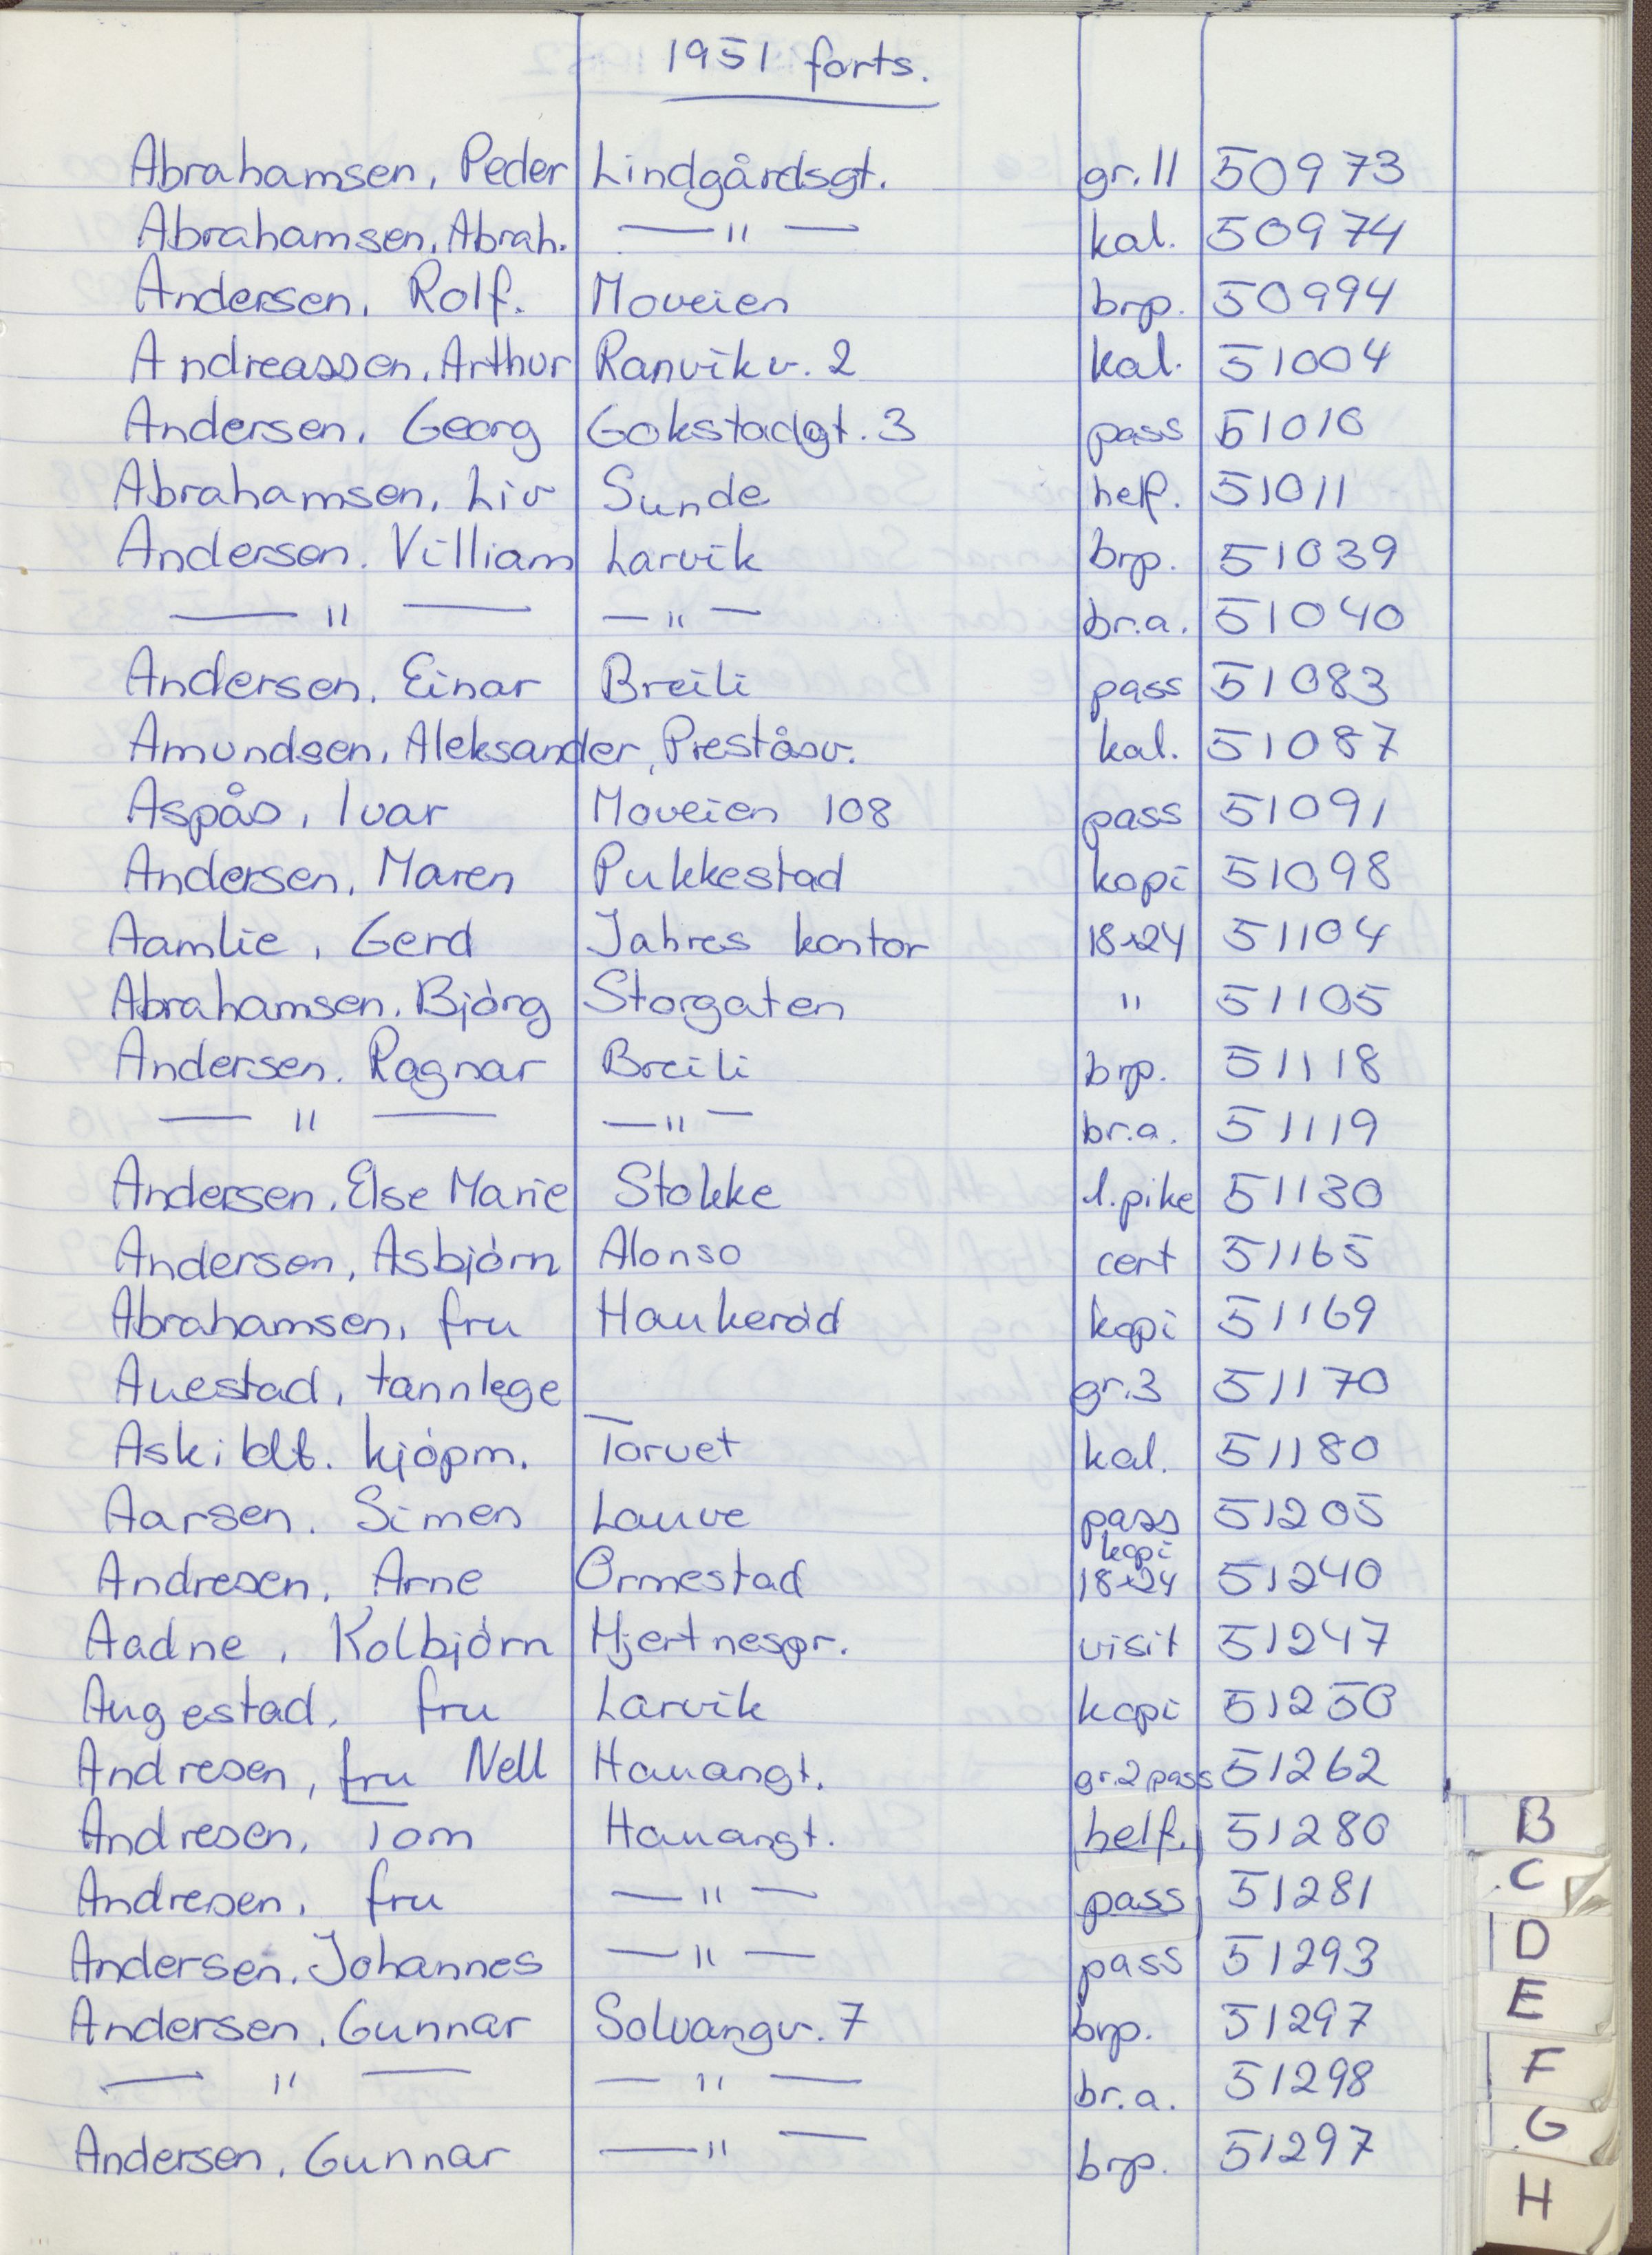 1951 forts.
Abrahamsen, Peder Lindgårdsgt. gr. 11 50973
Abrahamsen, Abrah. — " — kal. 50974
Andersen, Rolf. Moveien brp. 50994
Andreassen, Arthur Ranvikv. 2 kal. 51004
Andersen, Georg Gokstadgt. 3 pass 51010
Abrahamsen, Liv Sunde helf. 51011
Andersen. Villiam Larvik brp. 51039
— " — — " — br.a. 51040
Andersen, Einar Breili pass 51083
Amundsen, Aleksander, Preståsv. kal. 51087
Aspås, Ivar Moveien 108 pass 51091
Andersen, Maren Pukkestad kopi 51098
Aamlie, Gerd Jahres kontor 18x24 51104
Abrahamsen, Bjórg Storgaten " 51105
Andersen. Ragnar Breili brp. 51118
— " — — " — br.a. 51119
Andersen, Else Marie Stokke l.pike 51130
Andersen, Asbjórn Alonso cert 51165
Abrahamsen, fru Haukeród kopi 51169
Auestad, tannlege gr.3 51170
Askiblt. kjópm. Torvet kal. 51180
Aarsen. Simen Lauve pass 51205
Andresen, Arne Ormestad kopi 18x24 51240
Aadne, Kolbjórn Hjertnespr. visit 51247
Augestad, fru Larvik kopi 51250
Andresen, fru Nell Hauangt. gr.2 pass 51262
Andresen, Tom Hauangt. helf. 51280
Andresen, fru — " — pass 51281
Andersen, Johannes — " — pass 51293
Andersen, Gunnar Solvangv. 7 brp. 51297
— " — — " — br.a. 51298
Andersen, Gunnar — " — brp. 51297
B
C
D
E
F
G
H